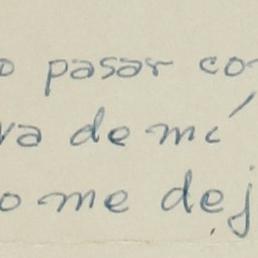 o pasar co
va de mí
o me dej